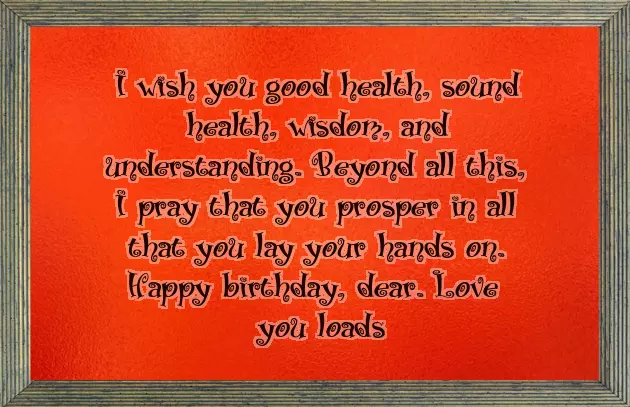 I wish you good health, sound
health, wisdom, and
understanding. Beyond all this,
I pray that you prosper in all
that you lay your hands on.
Happy birthday, dear. Love
you loads